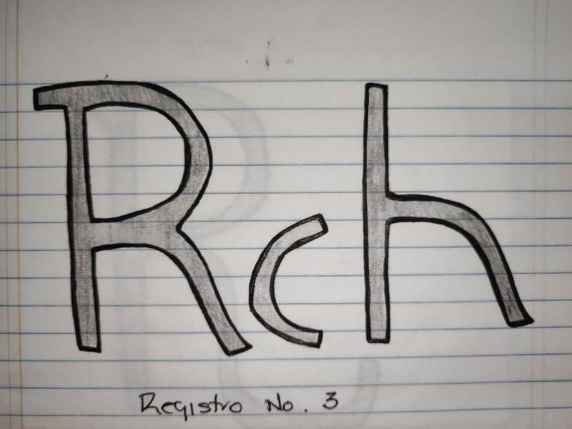 Rch
Registro No. 3